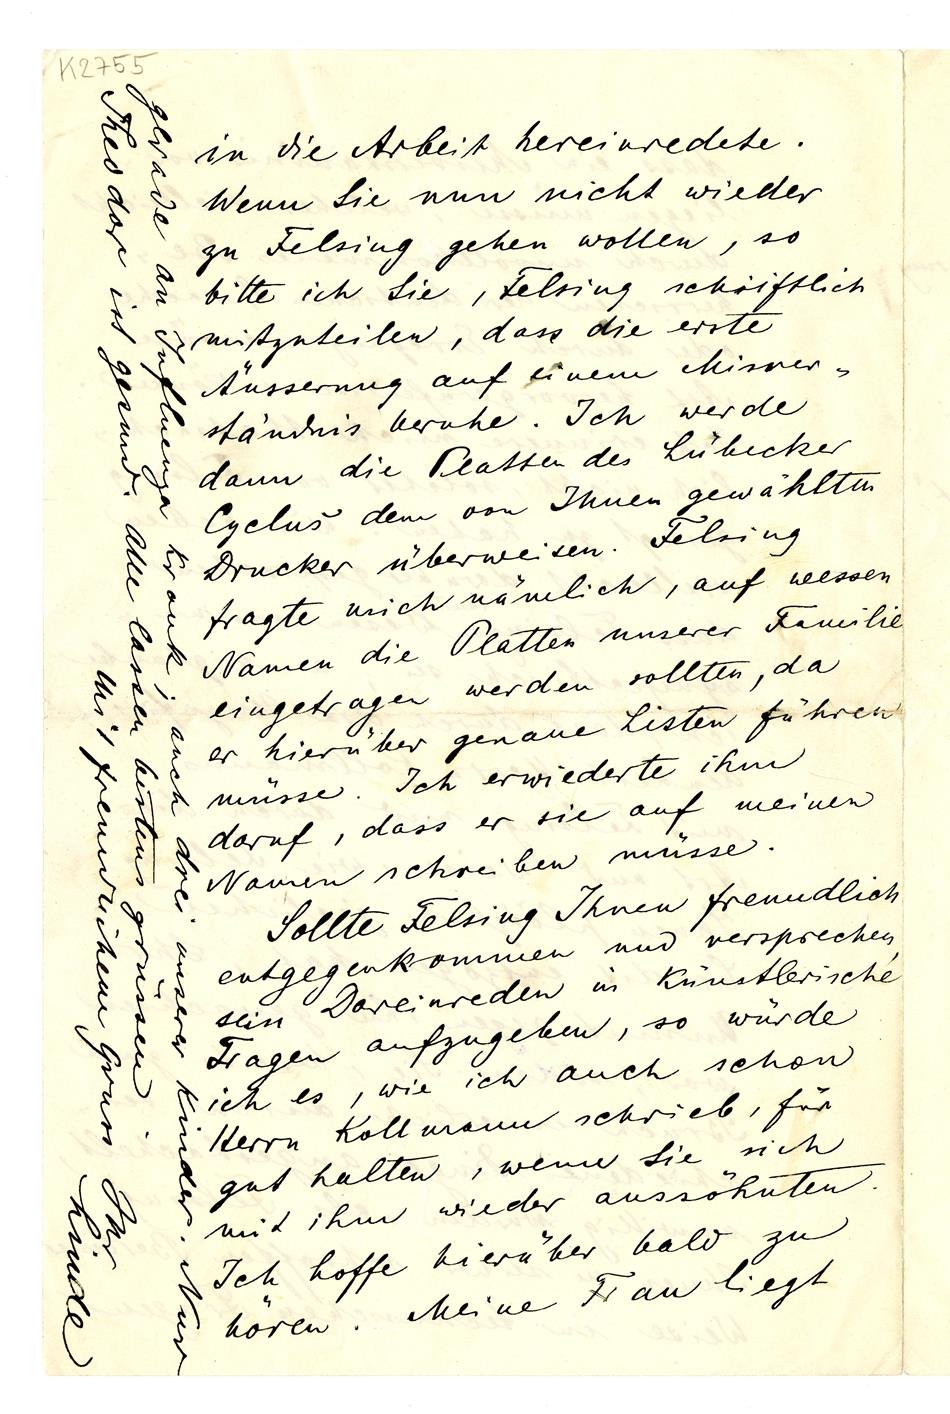 K2755
in die Arbeit hereinredete.
Wenn Sie nun nicht wieder
zu Felsing gehen wollen, so
bitte ich Sie, Felsing schriftlich
mitzuteilen, dass die erste
Äusserung auf einem Misver-
ständnis beruhe. Ich werde
dann die Platten des Lübecker
Cyclus dem von Ihnen gewählten
Drucker überweisen. Felsing
fragte mich nämlich, auf wessen
Namen die Platten unserer Familie
eingetragen werden sollten, da
er hierüber genaue Listen führen
müsse. Ich erwiederte ihm
darauf, dass er sie auf meinen
Namen schreiben müsse.
Sollte Felsing Ihnen freundlich
entgegenkommen und versprechen,
sein Dareinreden in künstlerische
Fragen aufzugeben, so würde
ich es, wie ich auch schon
Herrn Kollmann schrieb, für
gut halten, wenn Sie sich
mit ihm wieder aussöhnten.
Ich hoffe hierüber bald zu
hören. Meine Frau liegt
gerade an Influenza krank; auch drei unserer Kinder. Nur
Theodor ist gesund. Alle lassen bestens grüssen.
Mit freundlichem Gruss Ihr
Linde